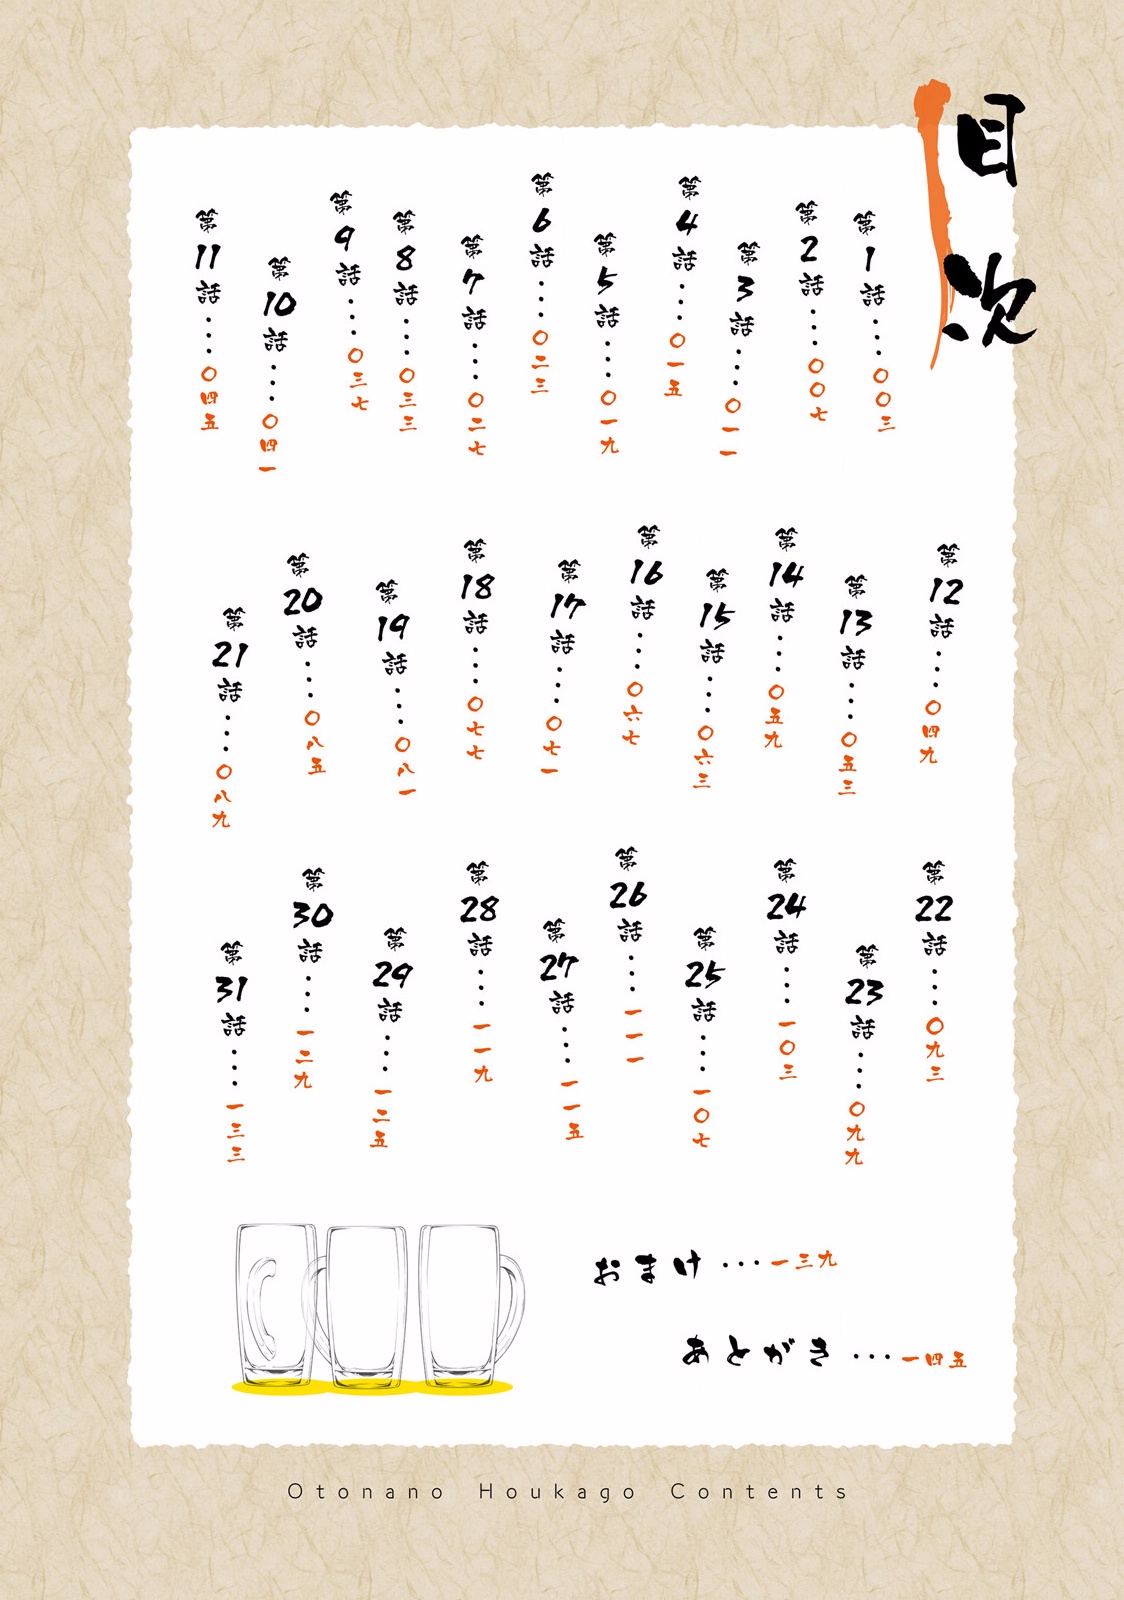 目次
第1話・・・・〇〇三
第2話・・・・〇〇七
第3話・・・・〇一一
第4話・・・・〇一五
第5話・・・・〇一九
第6話・・・・〇二三
第7話・・・・〇二七
第8話・・・・〇三三
第9話・・・・〇三七
第10話・・・・〇四一
第11話・・・・〇四五
第12話・・・・〇四九
第13話・・・・〇五三
第14話・・・・〇五九
第15話・・・・〇六三
第16話・・・・〇六七
第17話・・・・〇七一
第18話・・・・〇七七
第19話・・・・〇八一
第20話・・・・〇八五
第21話・・・・〇八九
第22話・・・・〇九三
第23話・・・・〇九九
第24話・・・・一〇三
第25話・・・・一〇七
第26話・・・・一一一
第27話・・・・一一五
第28話・・・・一一九
第29話・・・・一二五
第30話・・・・一二九
第31話・・・・一三三
おまけ・・・一三九
あとがき・・・一四五
Otonano Houkago Contents